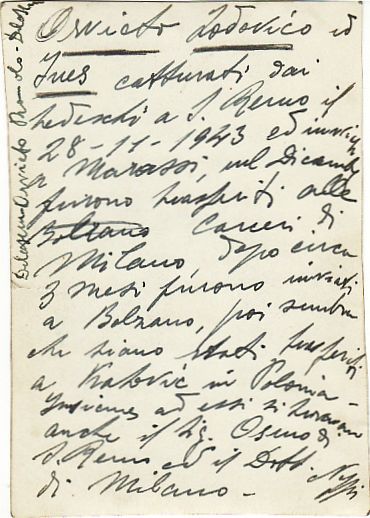 Orvieto Lodovico ed
Ines catturati dai
tedeschi a S. Remo il
28-11-1943 ed inviati
a Marassi, nel Dicembre
furono trasferiti alle
Bolzano Carceri di
Milano, dopo circa
3 mesi furono inviati
a Bolzano, poi sembra
che siano stati trasferiti
a Katovic in Polonia -
Insieme ad essi si trovavano
anche il Sig. Osmo di
S. Remo ed il Dott.
di Milano -
Orvieto